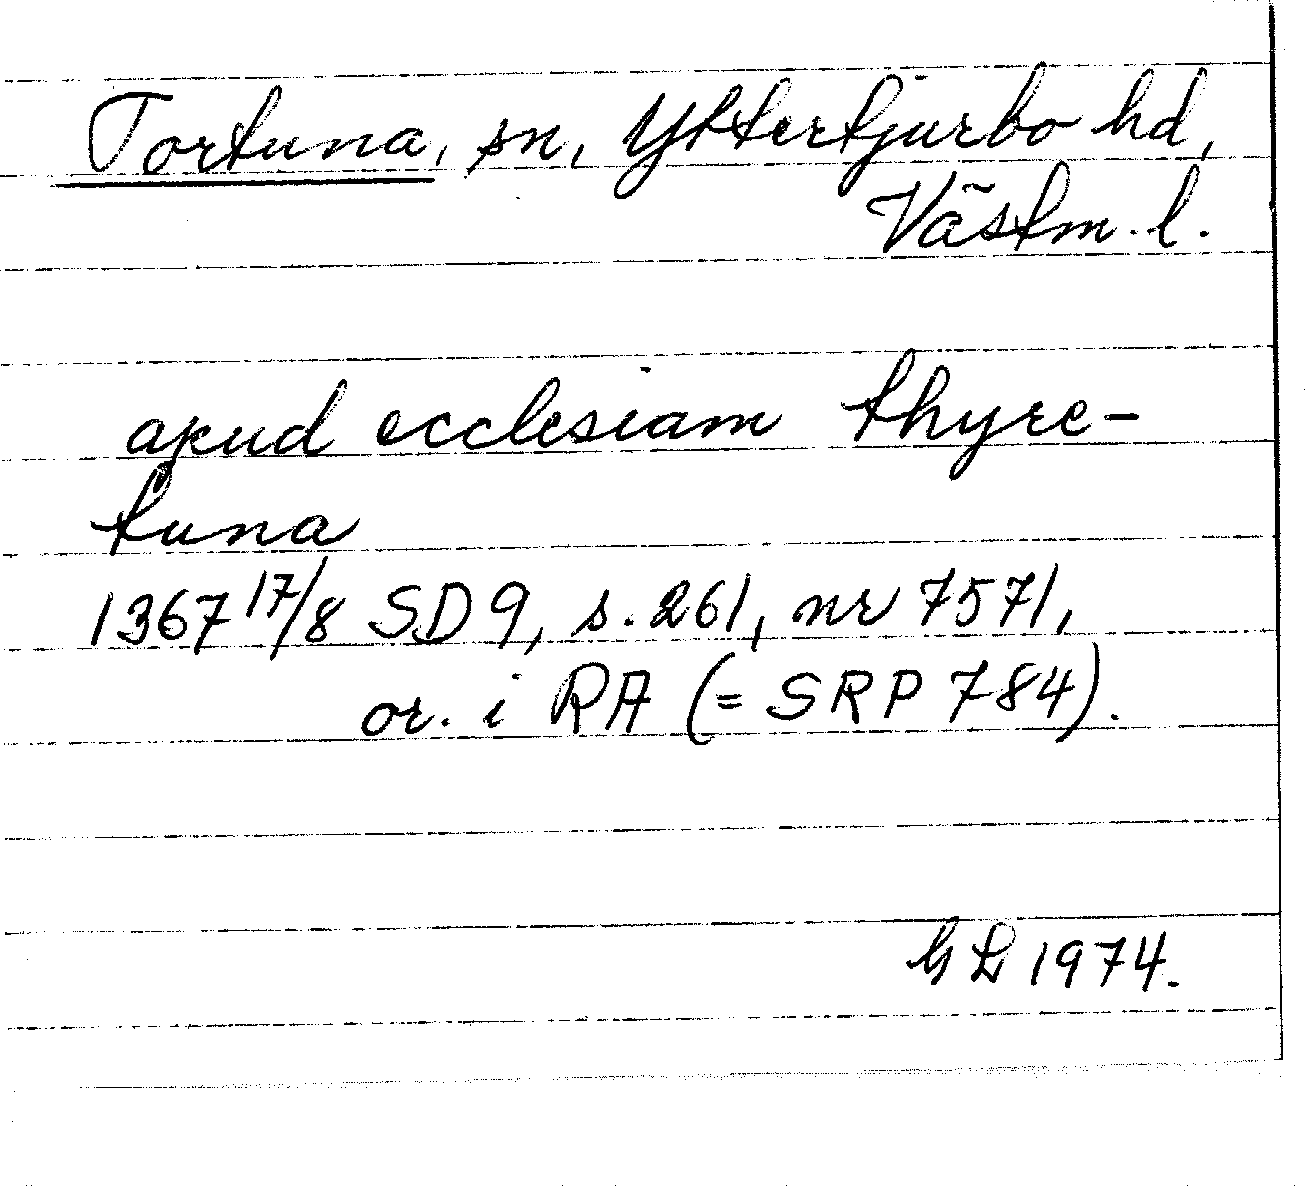 Tortuna, sn, Yttertjurbo hd,
Västm. l.
apud ecclesiam thyre-
tuna
1367 17/8 SD 9, s. 261, nr 7571,
or. i RA (= SRP 784).
GL 1974.